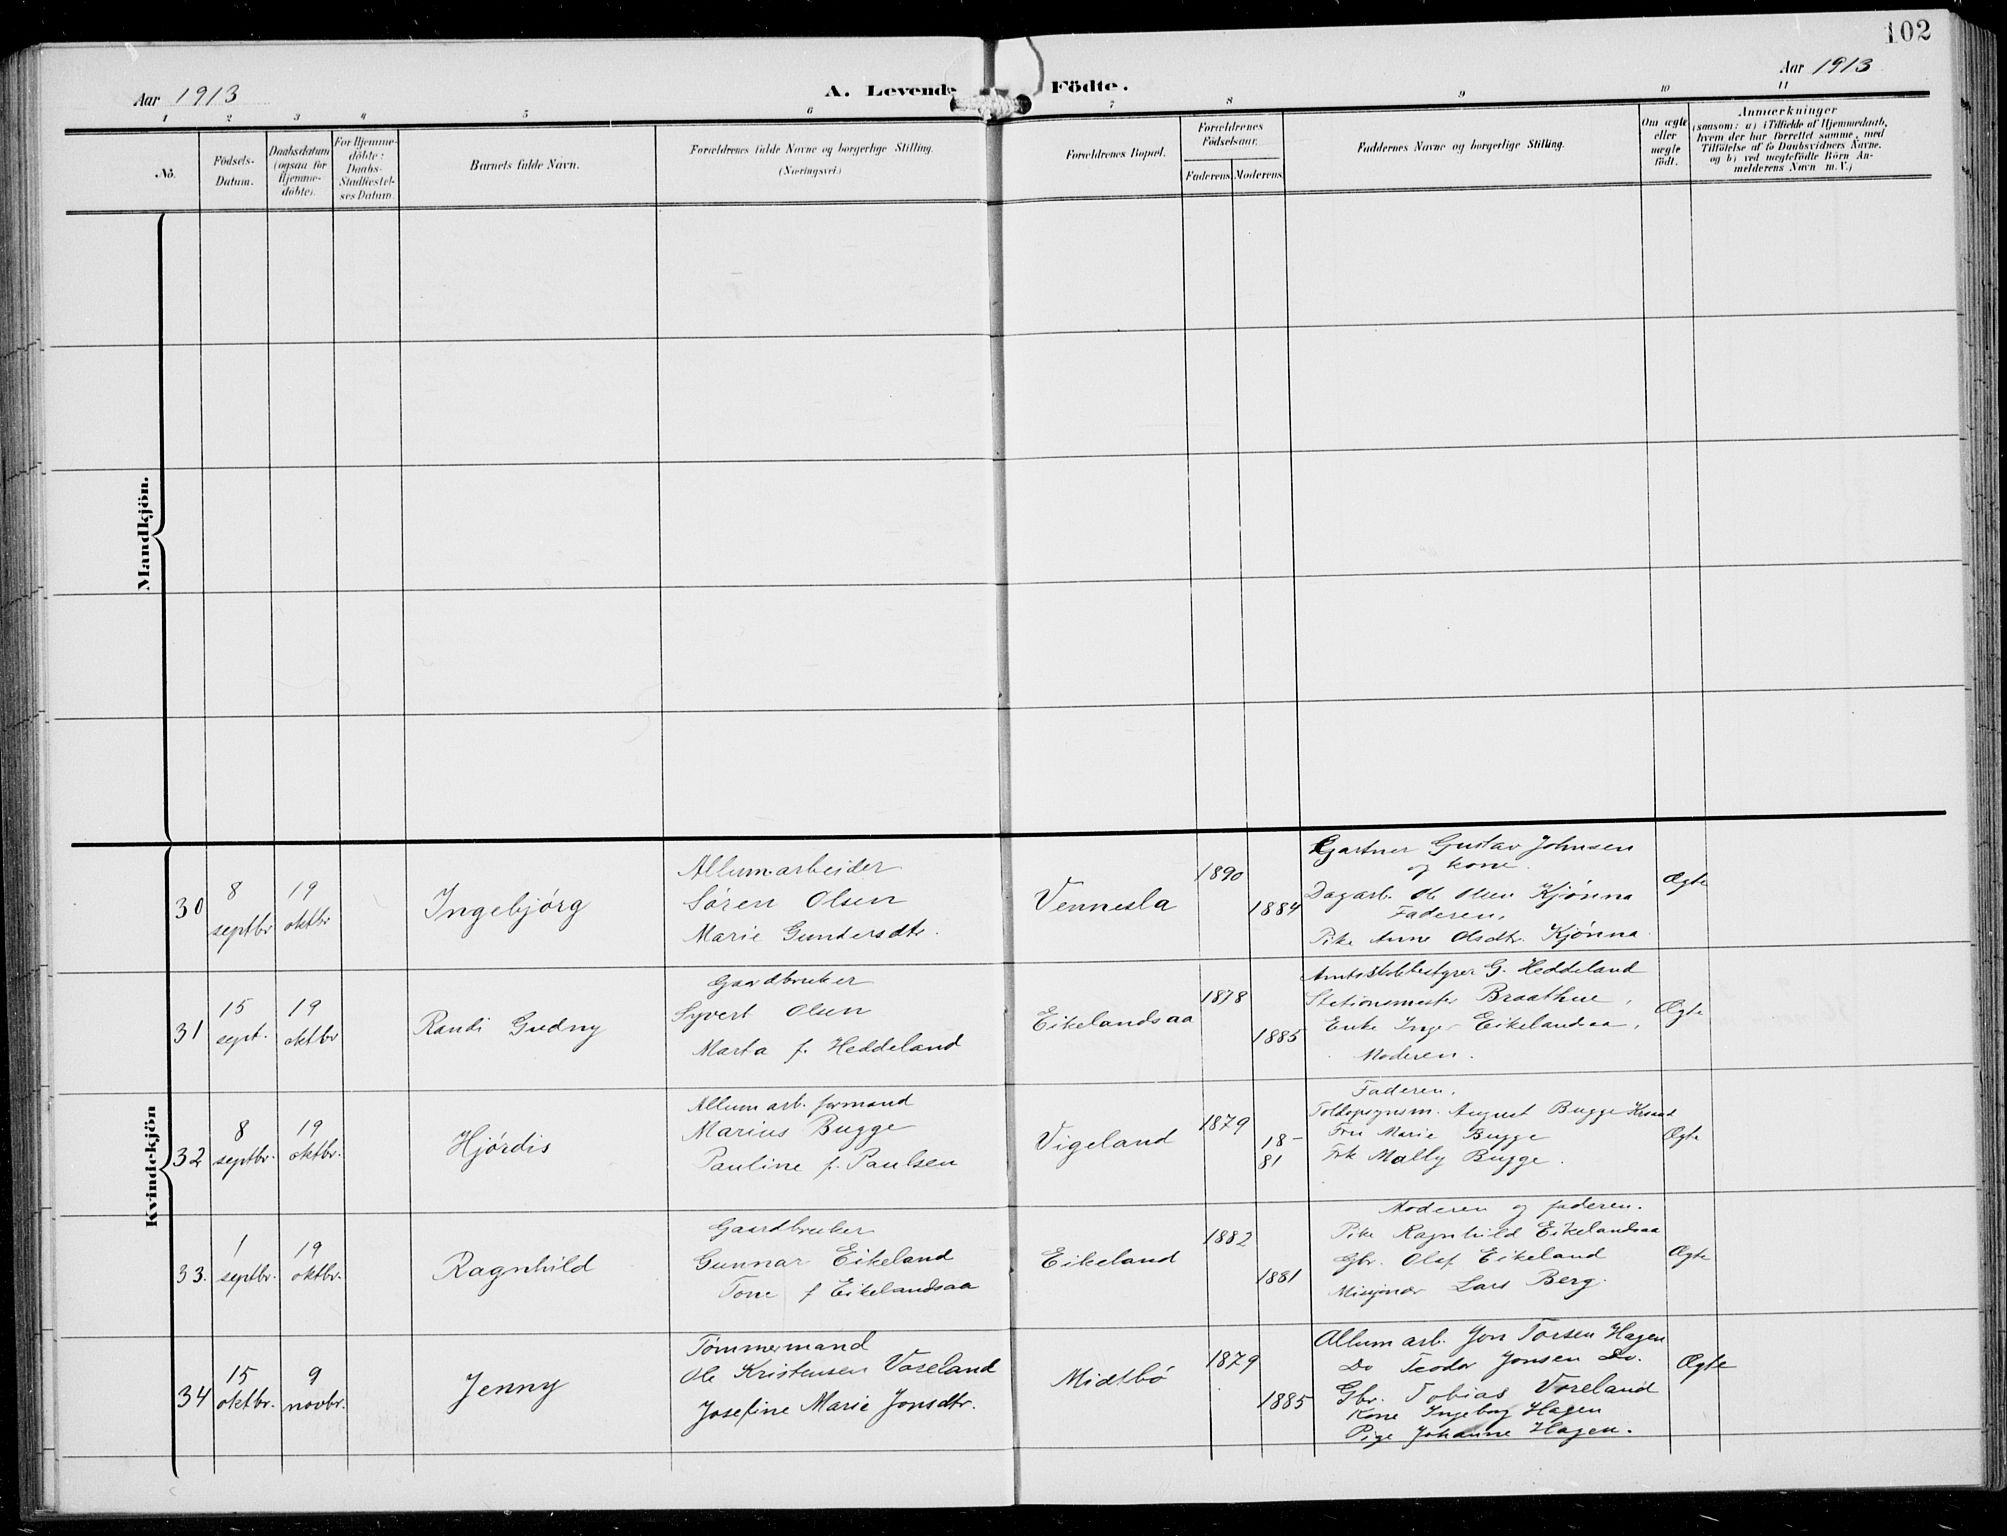 102
Aar 1913
A. Levende Födte.
Aar 1913
1 2 3 4 5 6 7 8 9 10 11
No.
Födsels-
Datum.
Daabsdatum
(ogsaa for
Hjemme-
döbte).
For Hjemme-
döbte:
Daabs-
Stadfæstel-
ses Datum
Barnets fulde Navn.
Forældrenes fulde Navne og borgerlige Stilling.
(Næringsvei.)
Forældrenes Bopæl.
Forældrenes
Födselsaar.
Faderens Moderens
Faddernes Navne og borgerlige Stilling.
Om ægte
eller
uægte
födt.
Anmærkninger
(saasom: a) i Tilfælde af Hjemmedaab,
hvem der har forrettet samme, med
Tilföielse af to Daabsvidners Navne.
og b) ved uægtefödte Börn An-
melderens Navn m. V.)
Mandkjön.
Kvindekjön
30
8
septbr
19
oktbr
Ingebjørg
Allum.arbeider
Søren Olsen
Marie Gundersdtr.
Vennesla
1890
1884
Gartner Gustav Johnsen
og kone.
Dagarb. Ole Olsen Kjønna
Faderen.
Pike Anne Olsdtr. Kjønna.
Ægte
31
15
sept.
19
oktbr
Randi Gudny
Gaardbruker
Syvert Olsen
Marta f. Heddeland
Eikelandsaa
1878
1885
Amtsskolebestyrer G. Heddeland
Stationsmester Braathue,
Enke Inger Eikelandsaa,
Moderen.
Ægte
32
8
septbr.
19
oktbr.
Hjørdis
Allum arb. formand
Marius Bugge
Pauline f. Paulsen
Vigeland
1879
18-
81
Faderen.
Toldopsynsm. August Bugge Krsand
Fru Marie Bugge
Frk Mally Bugge.
Ægte
33.
1
septbr.
19
oktbr.
Ragnhild
Gaardbruker
Gunnar Eikeland
Tone f Eikelandsaa
Eikeland
1882
1881
Moderen og faderen.
Pike Ragnhild Eikelandsaa
Gbr. Olaf Eikeland
Misjonær Lars Berg.
Ægte
34
15
oktbr.
9
novbr.
Jenny
Tømmermand
Ole Kristensen Voreland
Josefine Marie Jonsdtr.
Midtbø
1879
1885
Allum arb. Jon Torsen Hagen
Do Teodor Jonsen Do.
Gbr. Tobias Voreland
Kone Ingeborg Hagen
Pige Johanne Hagen.
Ægte